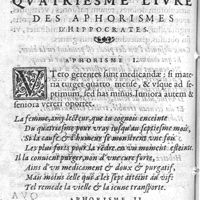 QVATRIESME LIVRE
DES APHORISMES
D'HIPPOCRATES.
APHORISME I.
VTero gerentes sunt medicandæ: si materia
turget quarto mense, & vsque ad septimum,
sed has minus. Iuniora autem &
seniora vereri oportet.
La femme, amy lecteur, que tu cognois enceinte
Du quatriesme pour vray iusqu'au septiesme mois,
Si la cause & l'humeur se monstrent une fois
Les plus forts pour la rendre en un moment esteinte
Il la convient purger, non d'vne cure forte,
Ains d'un medicament & doux & purgatif,
Mais moins celle qui a les sept atteint de vif:
Tel remede la vieille & la ieune transporte.
APHORISME II.